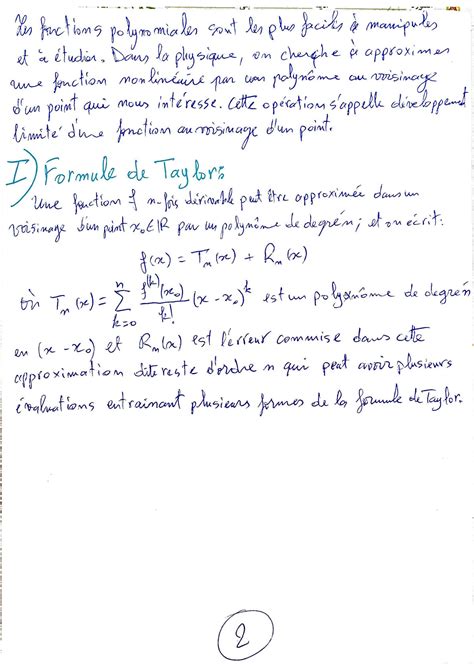 Les fonctions polynomiales sont les plus faciles à manipuler
et à étudier. Dans la physique, on cherche à approximer
une fonction non linéaire par un polynôme au voisinage
d'un point qui nous intéresse. Cette opération s'appelle développement
limité d'une fonction au voisinage d'un point.
I) Formule de Taylor:
Une fonction f n-fois dérivable peut être approximée dans un
voisinage d'un point x₀∈ℝ par un polynôme de degré n; et on écrit:
f(x) = Tₙ(x) + Rₙ(x)
où Tₙ(x) = ∑_{k=0}^{n} f^{(k)}(x₀)/k! (x - x₀)^k est un polynôme de degré n
en (x - x₀) et Rₙ(x) est l'erreur commise dans cette
approximation dite reste d'ordre n qui peut avoir plusieurs
évaluations entrainant plusieurs formes de la formule de Taylor.
2